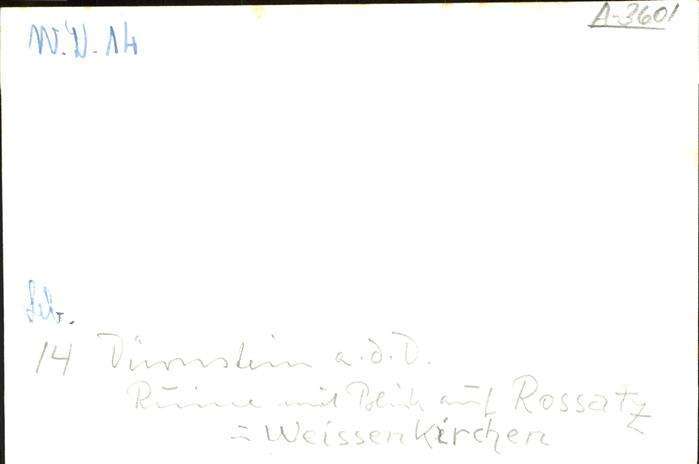 A-3601
W.N. 14
14 Dürnstein a.d.D.
Ruine mit Blick auf Rossatz
Weissenkirchen